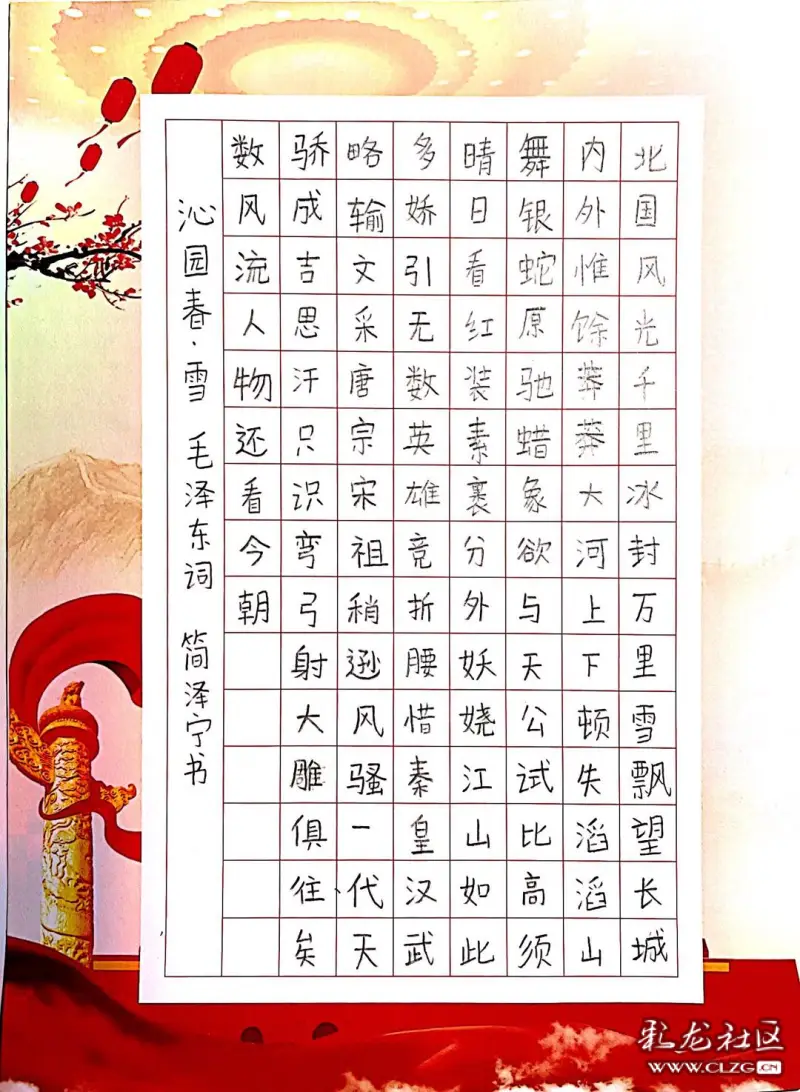 北国风光千里冰封万里雪飘望长城
内外惟馀莽莽大河上下顿失滔滔山
舞银蛇原驰蜡象欲与天公试比高须
晴日看红装素裹分外妖娆江山如此
多娇引无数英雄竞折腰惜秦皇汉武
略输文采唐宗宋祖稍逊风骚一代天
骄成吉思汗只识弯弓射大雕俱往矣
数风流人物还看今朝
沁园春·雪 毛泽东词 简泽宁书
彩龙社区
WWW.CLZG.CN